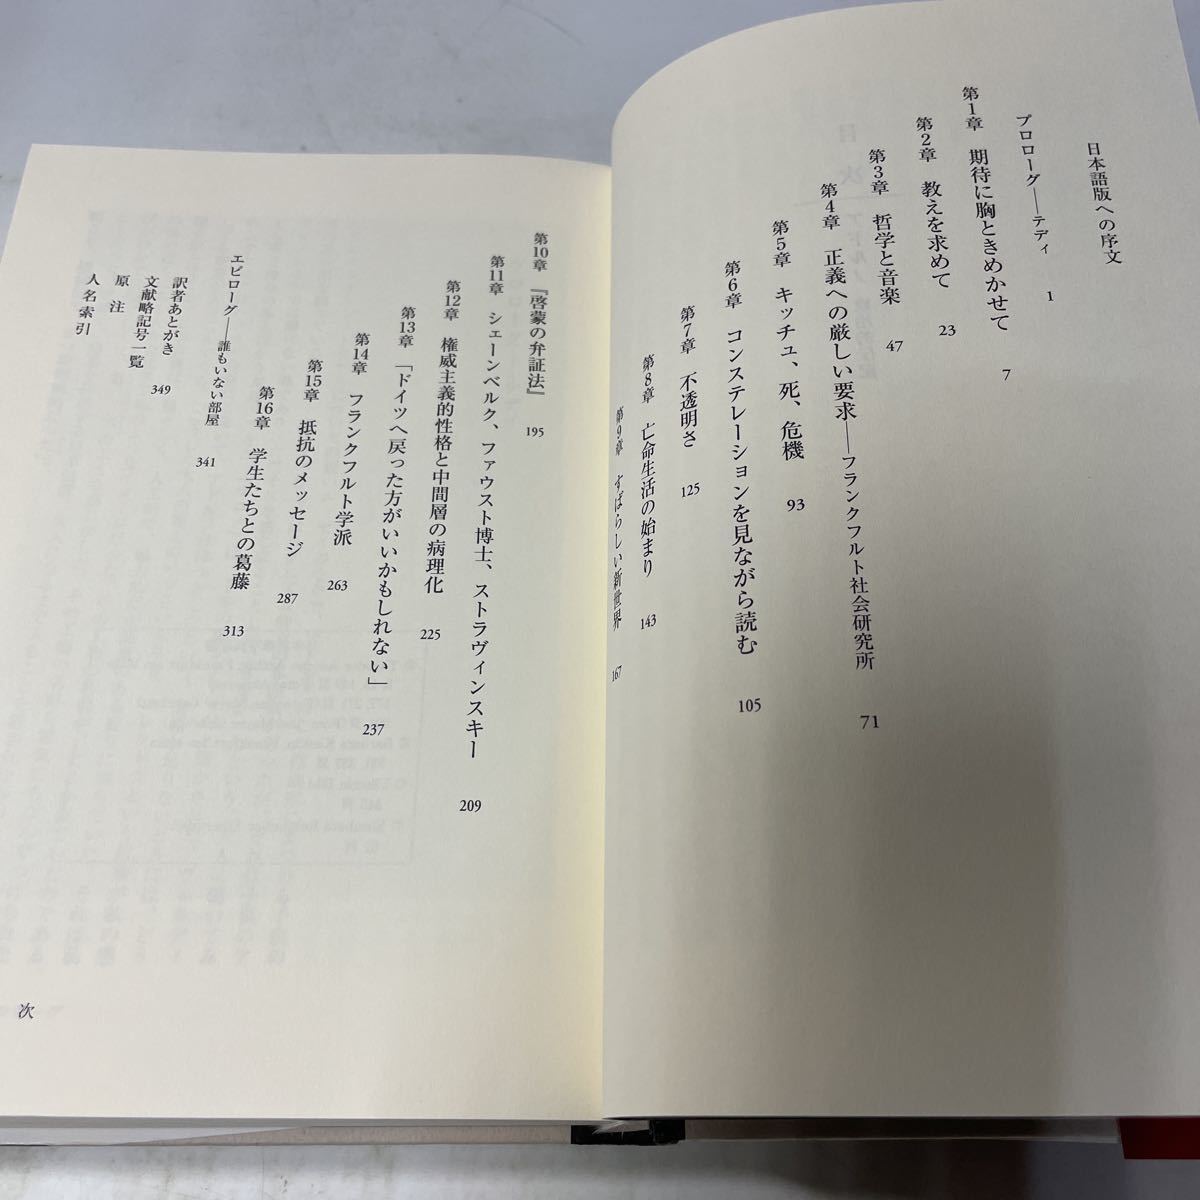 日本語版への序文
プロローグ——テディ 1
第1章 期待に胸ときめかせて 7
第2章 教えを求めて 23
第3章 哲学と音楽 47
第4章 正義への厳しい要求——フランクフルト社会研究所 71
第5章 キッチュ、死、危機 93
第6章 コンステレーションを見ながら読む 105
第7章 不透明さ 125
第8章 亡命生活の始まり 143
第9章 すばらしい新世界 167
第10章 『啓蒙の弁証法』 195
第11章 シェーンベルク、ファウスト博士、ストラヴィンスキー 209
第12章 権威主義的性格と中間層の病理化 225
第13章 「ドイツへ戻った方がいいかもしれない」 237
第14章 フランクフルト学派 263
第15章 抵抗のメッセージ 287
第16章 学生たちとの葛藤 313
エピローグ——誰もいない部屋 341
訳者あとがき 349
文献略記号一覧
原注
人名索引
次